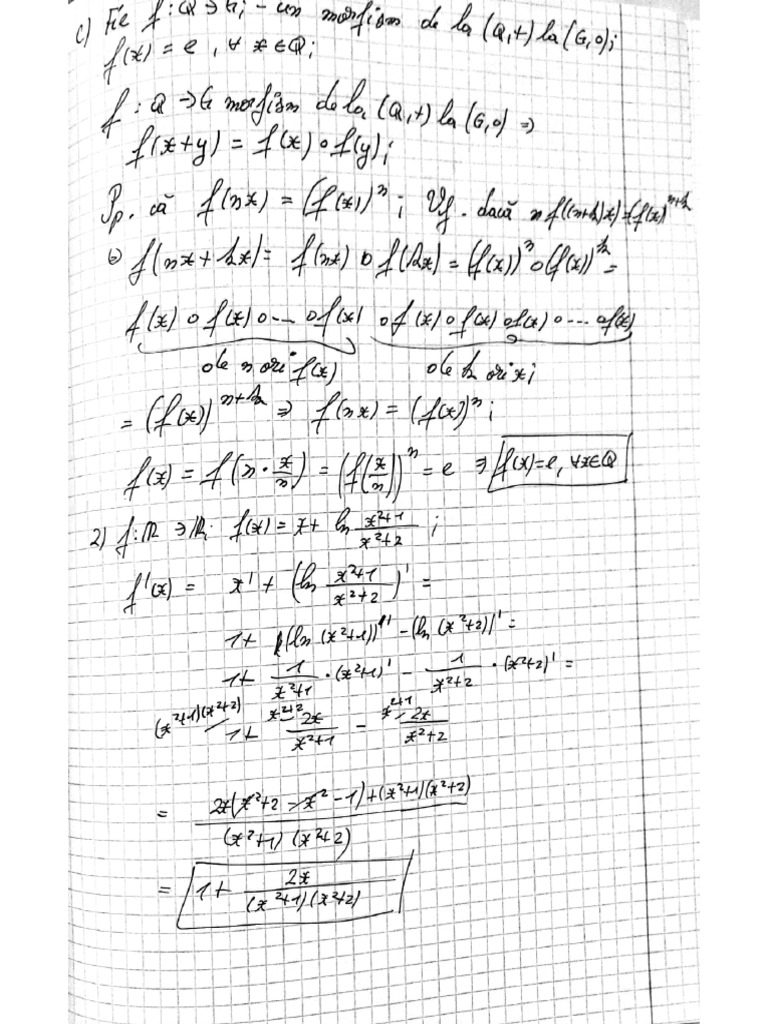 c) Fie f : Q → G; - un morfism de la (Q,+) la (G,o);
f(x) = e, ∀ x ∈ Q;
f : Q → G morfism de la (Q,+) la (G,o) ⇒
f(x+y) = f(x) o f(y);
Pp. că f(nx) = (f(x))^n ; Vf. dacă f((n+k)x) = (f(x))^{n+k}
f(nx + kx) = f(nx) o f(kx) = (f(x))^n o (f(x))^k =
f(x) o f(x) o ... o f(x) o f(x) o f(x) o f(x) o ... o f(x)
de n ori f(x) de k ori x;
= (f(x))^{n+k} ⇒ f(nx) = (f(x))^n ;
f(x) = f(n · x/n) = (f(x/n))^n = e ⇒ f(x) = e, ∀x∈Q
2) f: R → R; f(x) = x + ln (x²+1)/(x²+2) ;
f'(x) = x' + (ln (x²+1)/(x²+2))' =
1 + (ln (x²+1))' - (ln (x²+2))' =
1 + 1/(x²+1) · (x²+1)' - 1/(x²+2) · (x²+2)' =
(x²+1)(x²+2) x²+2 x²+1
1 + 2x/(x²+1) - 2x/(x²+2)
= (2x(x²+2 - x² - 1) + (x²+1)(x²+2))/((x²+1)(x²+2))
= 1 + 2x/((x²+1)(x²+2))